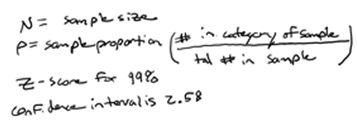 N = sample size
p = sample proportion ( # in category of sample / total # in sample )
Z-score for 99%
confidence interval is 2.58